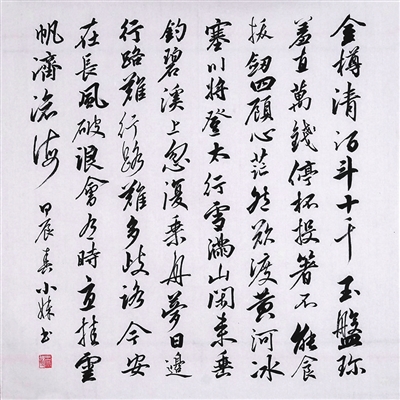 金樽清酒斗十千玉盤珍
羞直萬錢停杯投箸不能食
拔劍四顧心茫然欲渡黃河冰
塞川將登太行雪滿山閑來垂
釣碧溪上忽復乘舟夢日邊
行路難行路難多歧路今安
在長風破浪會有時直挂雲
帆濟滄海
甲辰春小書